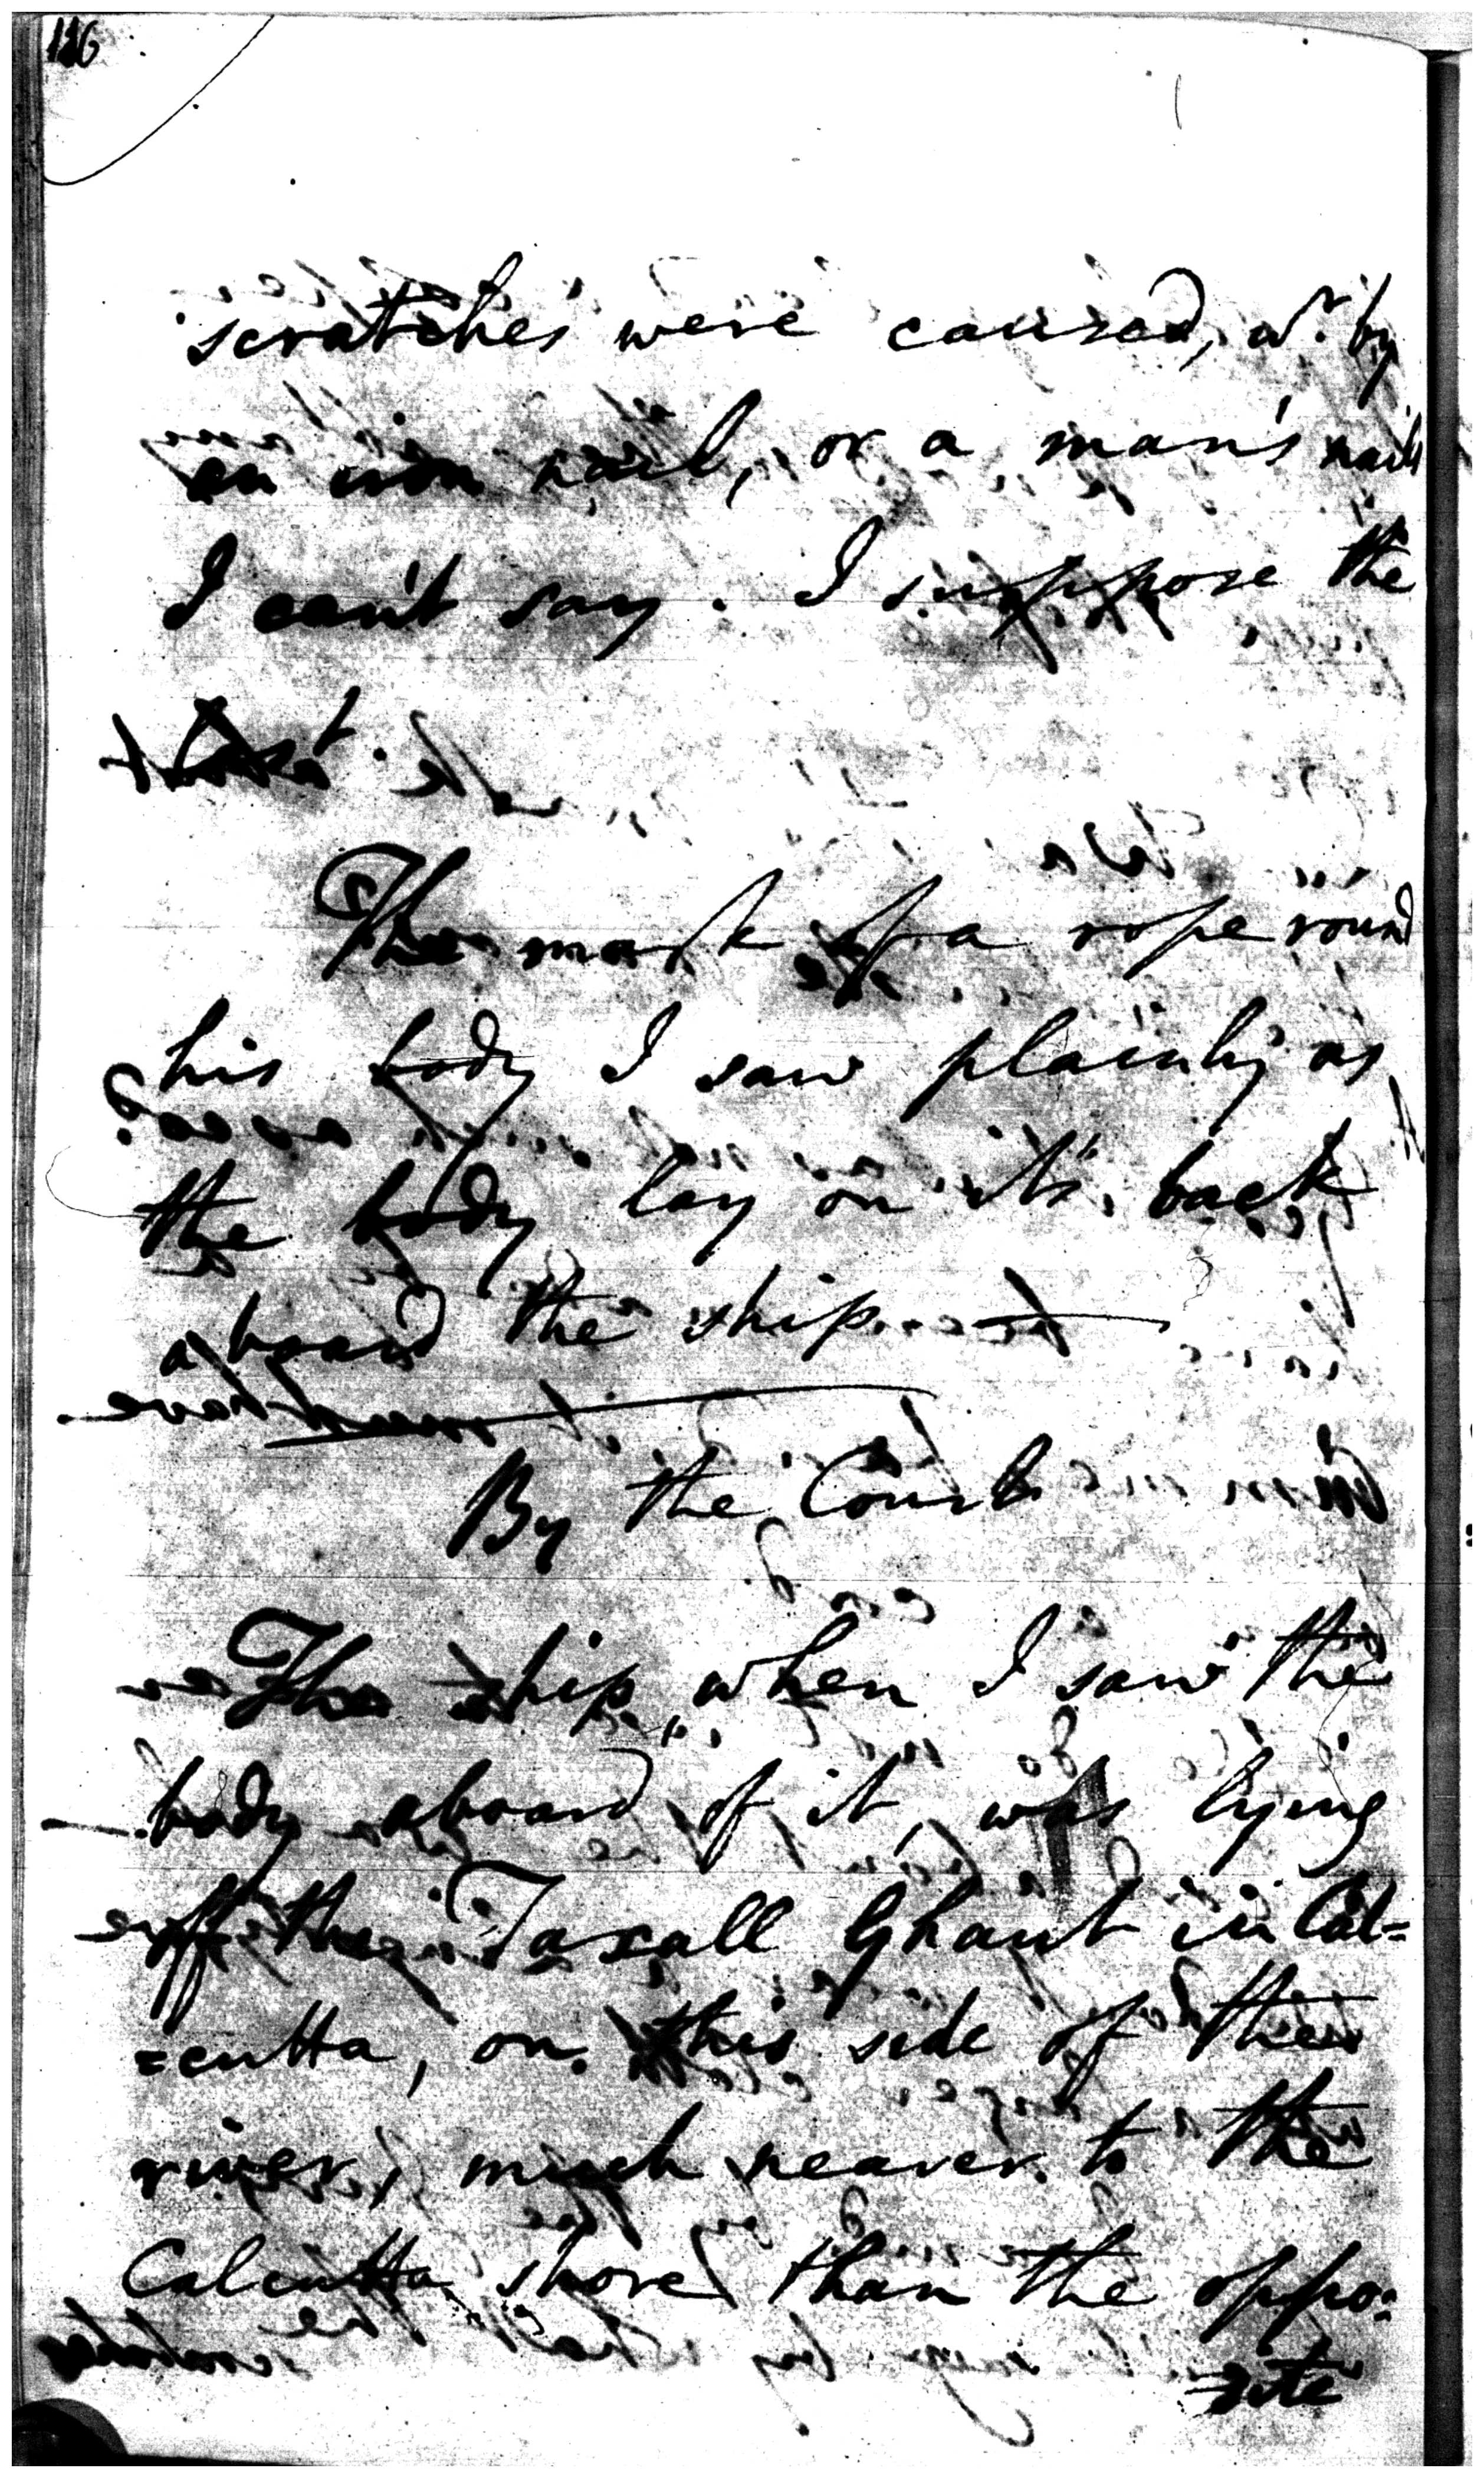 126
scratches were caused, wr. by
an iron nail, or a man's nails
I can't say. I suppose the
last.
The mark of a rope round
his body I saw plainly as
the body lay on it's back
aboard the ship.
By the Court.
The ship, when I saw the
body aboard of it, was lying
off the Taxall Ghaut in Cal=
=cutta, on this side of the
river, much nearer to the
Calcutta shore than the oppo=
=site